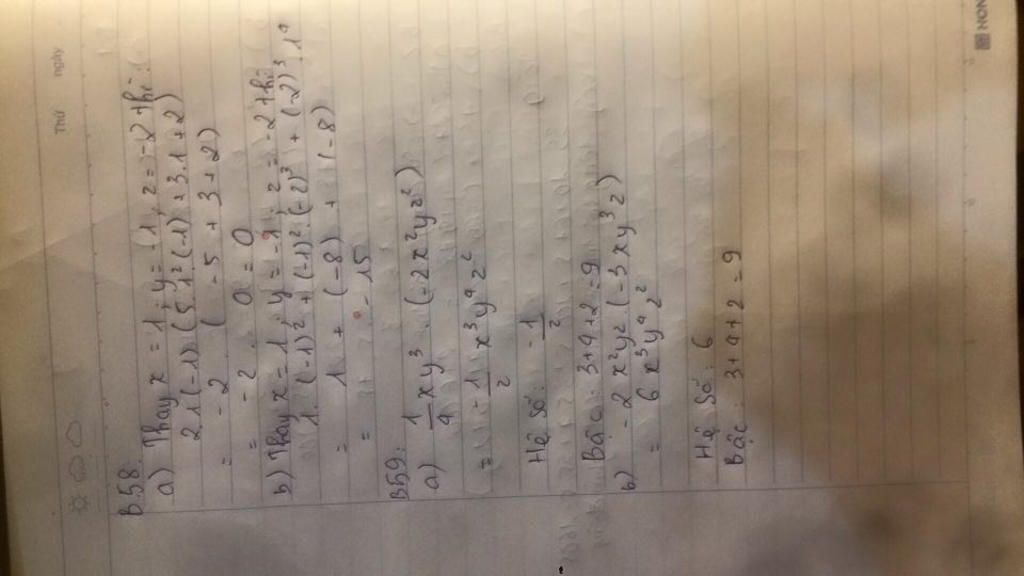 Thứ ngày
B58.
a) Thay x = 1; y = -1; z = -2 thì:
2.1(-1)(5.1²(-1)+3.1+2)
= -2 (-5 + 3 + 2)
= -2 . 0 = 0
b) Thay x = 1; y = -1; z = -2 thì
1.(-1)² + (-1)².(-2)³ + (-2)³.1⁴
= 1 + (-8) + (-8)
= -15
B59:
a) 1/4 xy³ . (-2x²yz²)
= -1/2 x³y⁴z²
Hệ số: -1/2
Bậc: 3+4+2=9
b) -2x²yz.(-3xy³z)
= 6x³y⁴z²
Hệ số: 6
Bậc: 3+4+2=9